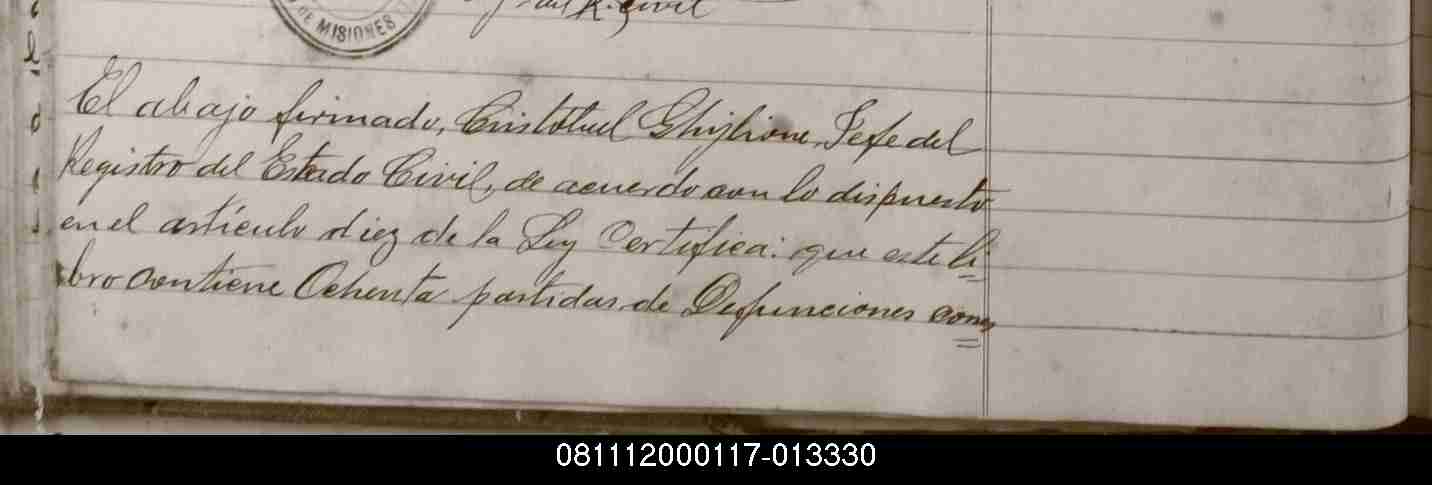 DE MISIONES
R. Civil
El abajo firmado, Cristobal Ghiglione, Jefe del
Registro del Estado Civil, de acuerdo con lo dispuesto
en el artículo diez de la Ley Certifica: que este li
bro contiene Ochenta partidas de Defunciones corres
081112000117-013330